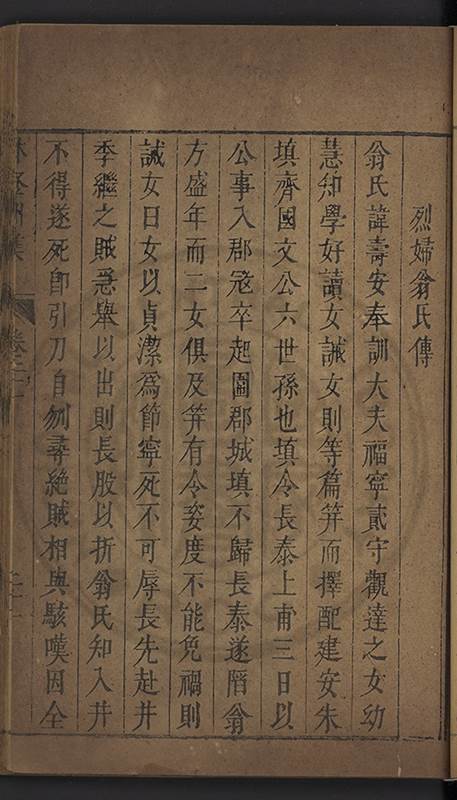 烈婦翁氏傳
翁氏諱壽安奉訓大夫福寧貳守觀達之女幼
慧知學好讀女誡女則等篇笄而擇配建安朱
填齊國文公六世孫也填令長泰上甫三日以
公事入郡冦卒起圍郡城填不歸長泰遂陷翁
方盛年而二女俱及笄有令姿度不能免禍則
誡女曰女以貞潔爲節寧死不可辱長先赴井
季繼之賊急舉以出則長股以折翁氏知入井
不得遂死卽引刀自刎尋絶賊相與駭嘆因全
卷之二